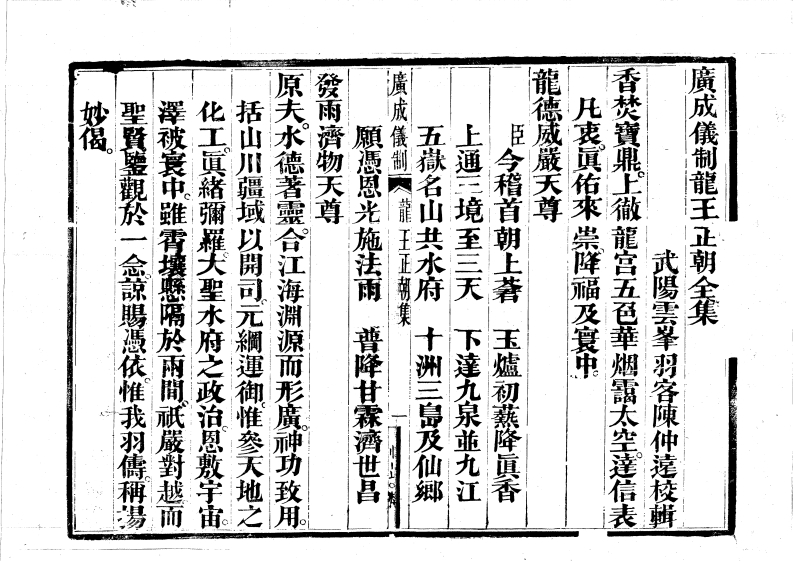 廣成儀制龍王正朝全集
武陽雲峯羽客陳仲遠校輯
香焚寶鼎。上徹龍宮五色華烟靄太空。達信表
凡衷。眞佑來崇降福及寰中。
龍德威嚴天尊
臣今稽首朝上蒼　玉爐初爇降眞香
上通三境至三天　下達九泉並九江
五嶽名山共水府　十洲三島及仙鄉
廣成儀制　龍王正朝集　一
願憑恩光施法雨　普降甘霖濟世昌
發雨濟物天尊
原夫。水德著靈。合江海淵源而形廣。神功致用。
括山川疆域以開司。元綱運御。惟參天地之
化工。眞緒彌羅。大聖水府之政治。恩敷宇宙。
澤被寰中。雖霄壤懸隔於兩間。祇嚴對越而
聖賢鑒觀於一念。諒賜憑依。惟我羽儔。稱揚
妙偈。